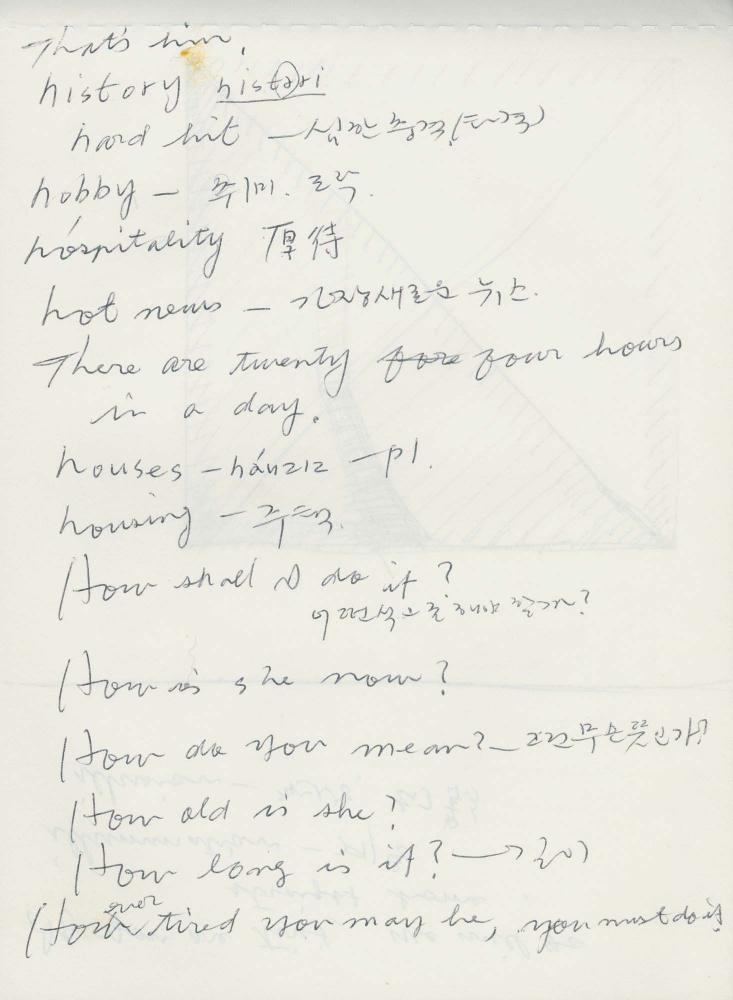 That's him.
history histəri
hard hit — 심한 충격, (타격)
hobby — 취미. 오락.
hóspitality 厚待
hot news — 가장새로운 뉴스.
There are twenty fore four hours
in a day.
houses — háuziz — pl.
housing — 주택.
How shall I do it?
어떤식으로 해야 할가?
How is she now?
How do you mean? — 그건무슨뜻인가?
How old is she?
How long is it? → 길이
However tired you may be, you must do it